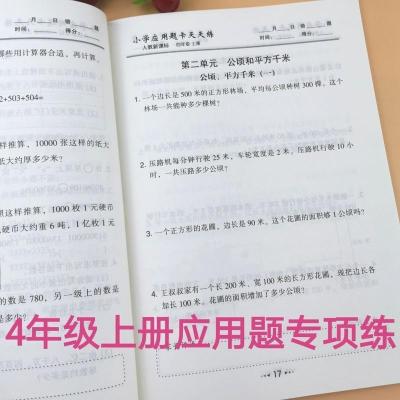 月 日 题
时间: 得分:
那些用计算器合适，再计算。
2+503+504=
样推算，10000 张这样的纸大
纸大约厚多少米?
照这样推算，1000 枚 1 元硬
硬币大约重 6 吨，1 亿枚 1 元
的数是 780，另一级上的数是
小学应用题卡天天练
人教新课标 四年级·上册
月 日 题
时间: 得分:
第二单元 公顷和平方千米
公顷、平方千米 (一)
1. 一个边长是 500 米的正方形林场，平均每公顷种树 300 棵，这个
林场一共能种多少棵树?
2. 压路机每分钟行驶 25 米，车轮宽度是 2 米。压路机行驶 10 小
时，一共压路多少公顷?
3. 一个正方形的花圃，边长是 90 米，这个花圃的面积够 1 公顷吗?
4. 王叔叔家有一个长 200 米、宽 100 米的长方形花圃，现把边长各
加长 100 米。花圃的面积增加了多少公顷?
4年级上册应用题专项练
17